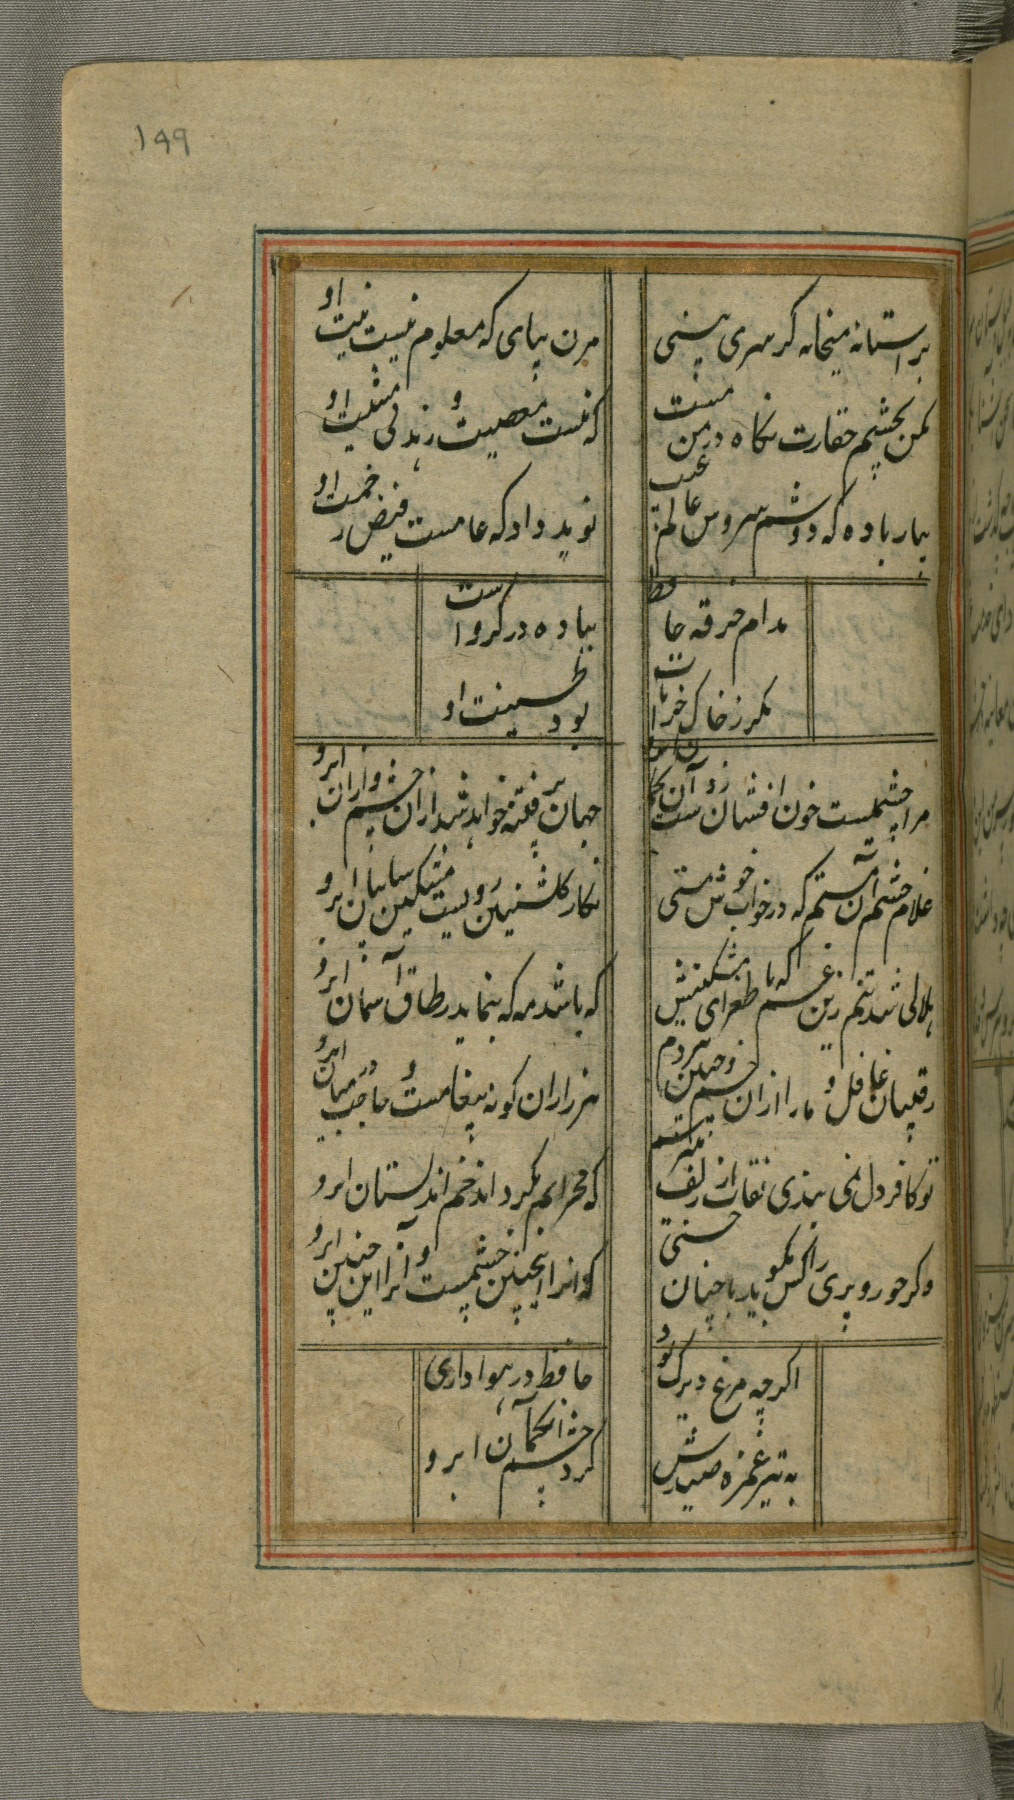 ۱۴۹
بر استانه میخانه گر سری بینی
مزن بپای که معلوم نیست نیت او
مکن بچشم حقارت نکاه در من مست
که نیست معصیت و زندگی مشیت او
بیار باده که دوشم سروش عالم غیب
نوید داد که عامست فیض رحمت او
مدام خرقه حافظ
بباده در کرو است
مکر ز خاک خرابات
بود
مرا چشمیست خون افشان ز دست آن کمان ابرو
جهان پر فتنه خواهد شد از ان چشم و از ان ابرو
غلام چشم آن مستم که در خواب خوش مستی
نکار کلشنین رویست مشکین سایبان ابرو
هلالی شد تنم زین غم که با طغرای مشکینش
که باشد مه که بنماید ز طاق آسمان ابرو
رقیبان غافل و ما را از ان چشم و جبین هردم
هزاران کونه پیغامست و حاجب در میان ابرو
تو کافر دل نمی بندی نقاب زلف
که محرابم بکرداند خم اندلستان ابرو
وکر حور و پری را کس نکوید با چنان حسنی
که انرا اینچنین چشمیست و آنرا این چنین ابرو
اکرچه مرغ زیرک بود
حافظ در هواداری
به تیر غمزه صیدش
کرد چشم آن کمان ابرو